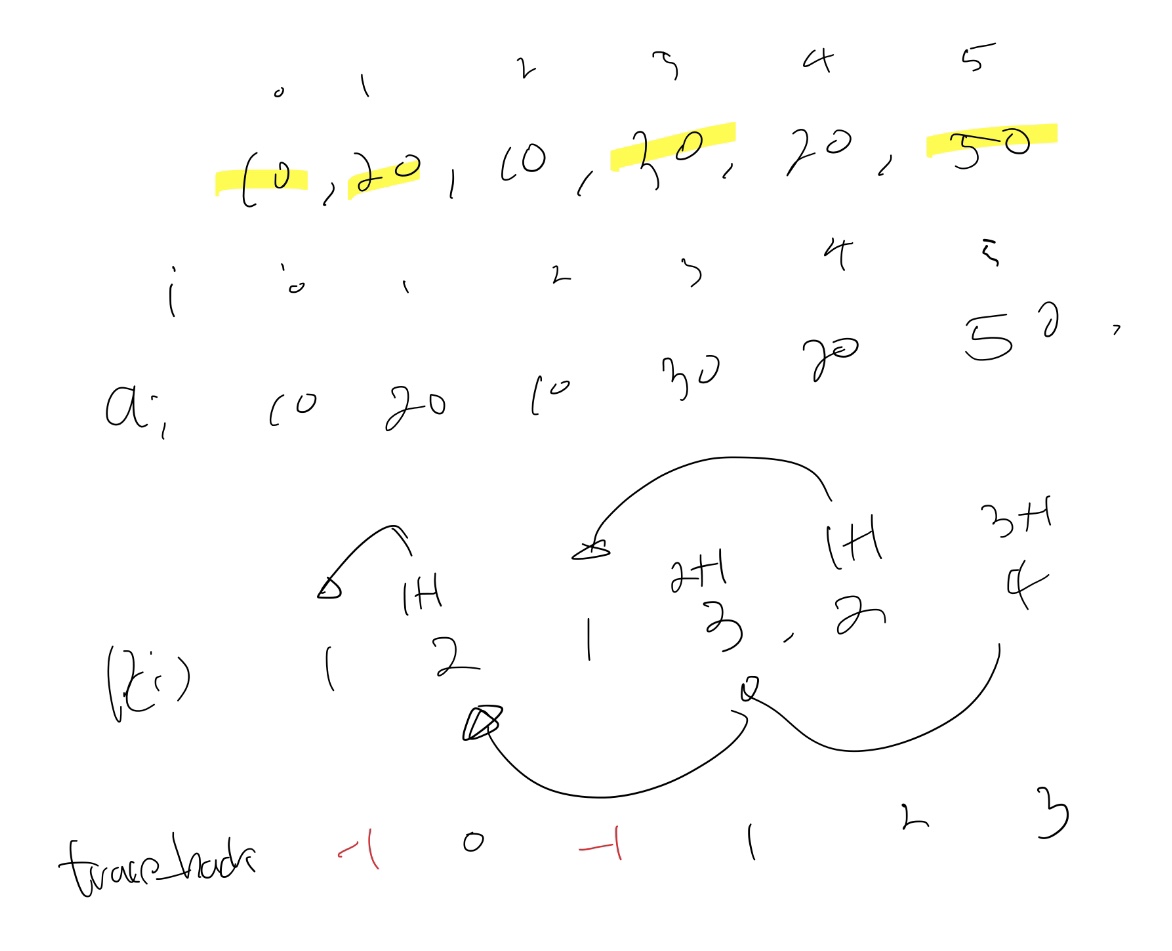 0 1 2 3 4 5
10, 20, 10, 30, 20, 50
i 0 1 2 3 4 5
ai 10 20 10 30 20 50,
1+1 2+1 1+1 3+1
l(i) 1 2 1 3, 2 4
trace_back -1 0 -1 1 2 3